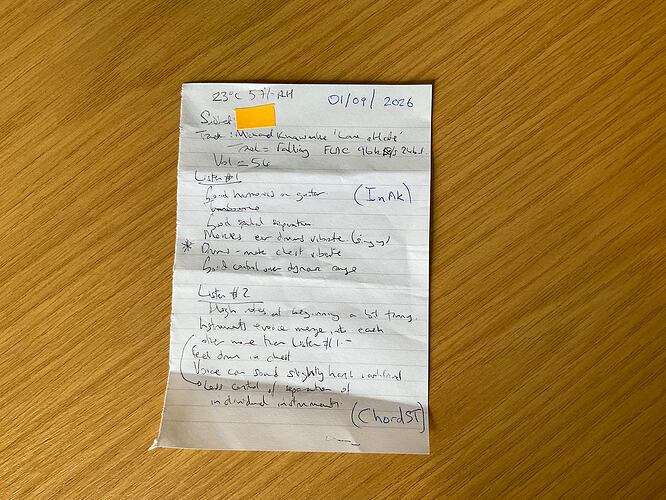 23°C 57% RH 01/09/2026
Subject:
Track: Michael Kiwanuka 'Love & Hate'
Track = Falling FLAC 96k 24bit
Vol = 54
Listen #1
(InAk)
Good harmonics on guitar
Good spatial separation
Makes ear drums vibrate (singing)
* Drums - make chest vibrate
Good control over dynamic range
Listen #2
High notes at beginning a bit tinny
Instruments & voice merge into each
other more than Listen #1 -
Feel drum in chest
Voice can sound slightly harsh
Less control of separation of
individual instruments.
(ChordST)